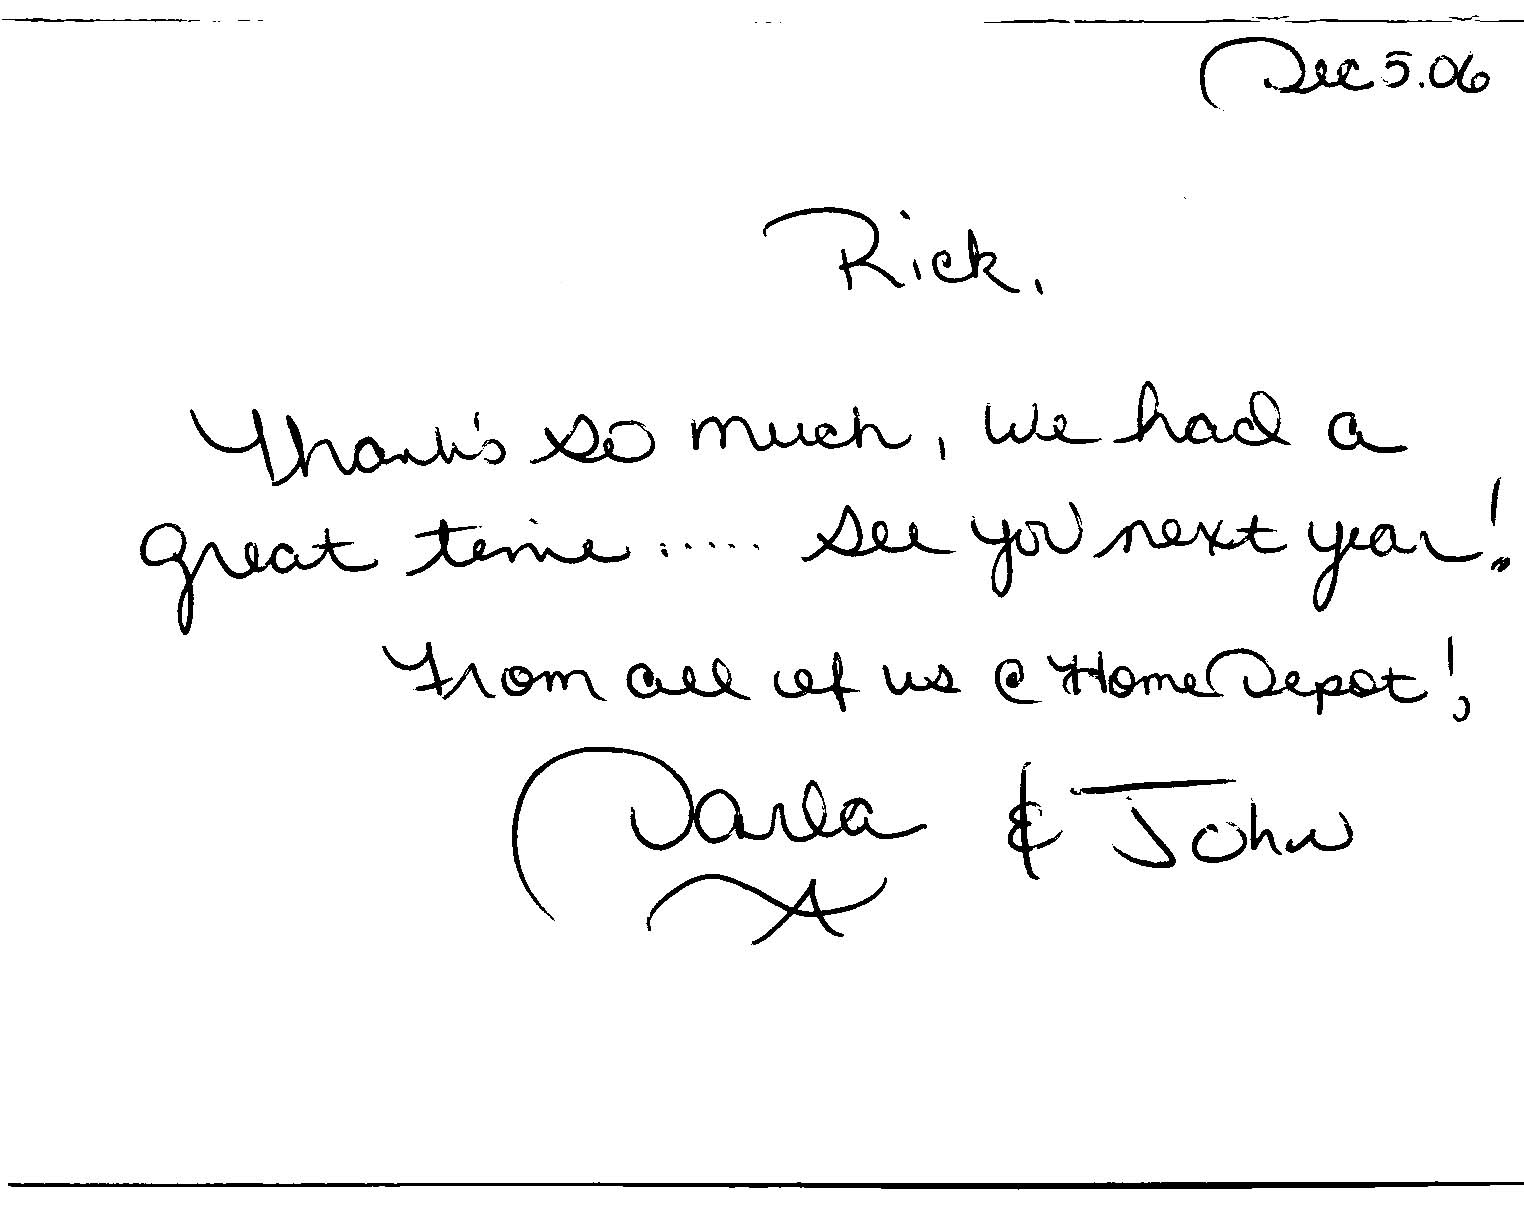 Dec 5.06
Rick,
Thank's so much, we had a
great time ..... see you next year!
From all of us @ Home Depot!
Darla & John